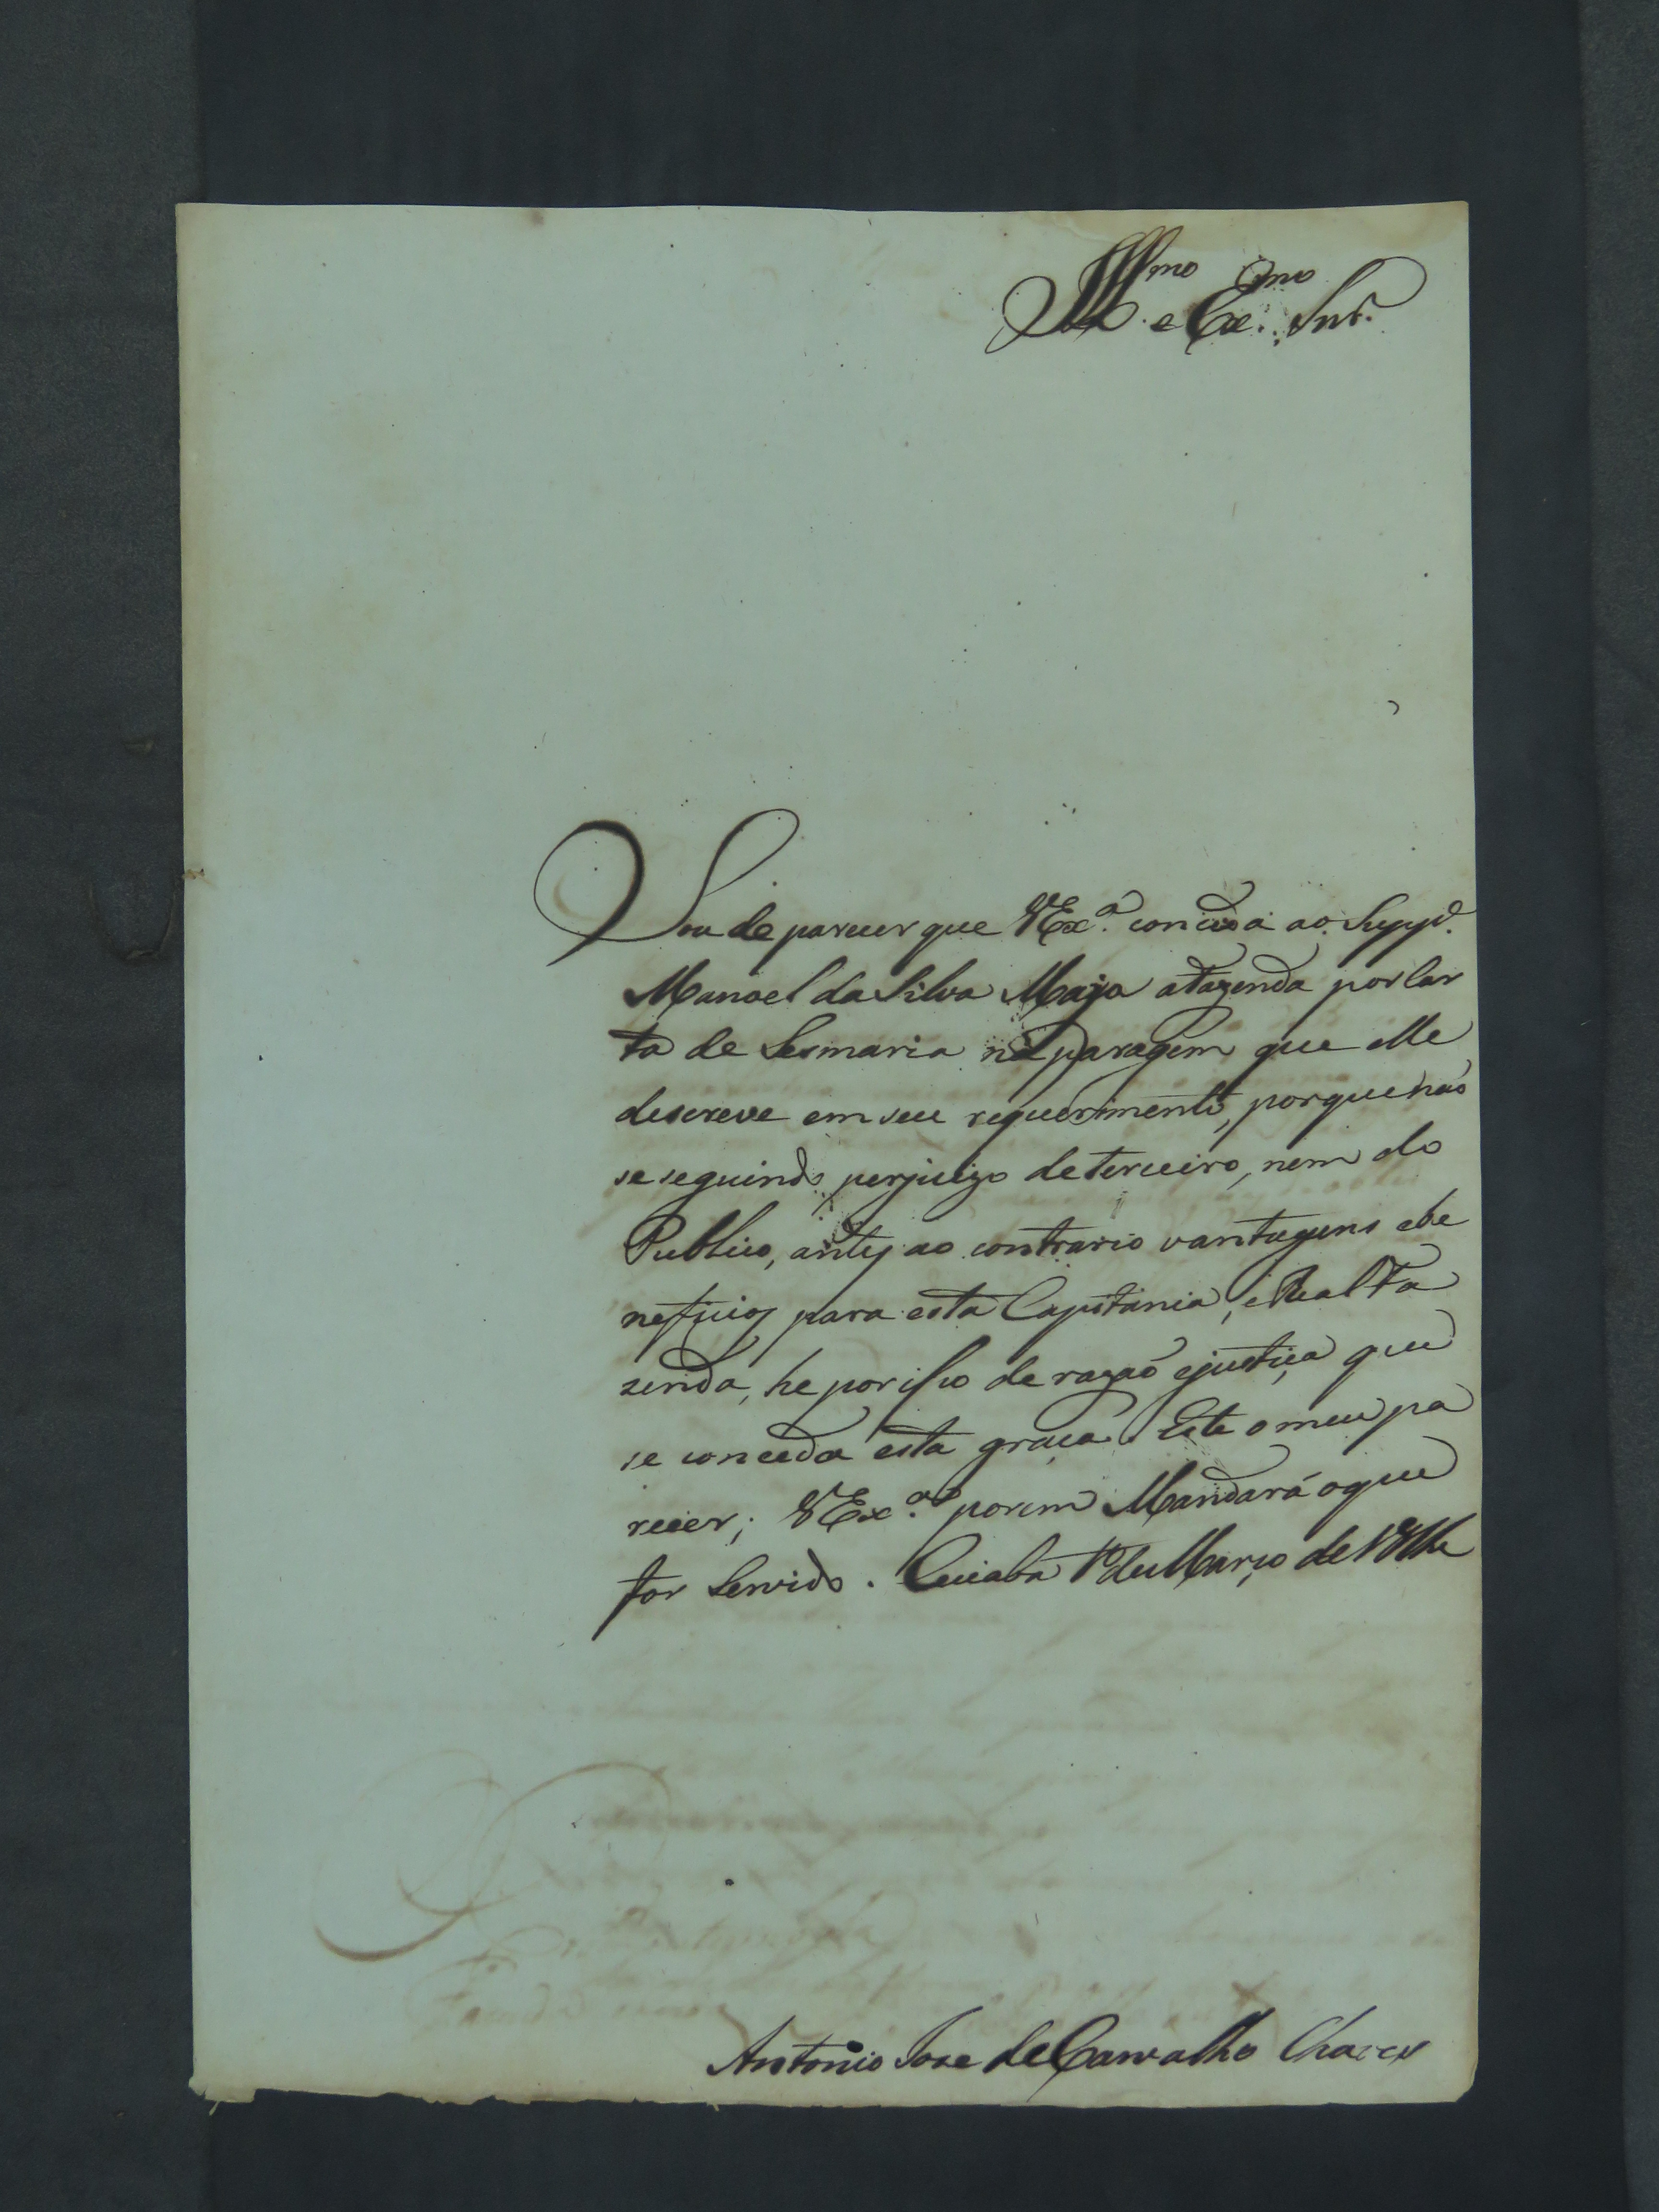 Illmo. e Exmo. Snr.
Sou de parecer que VExª. conceda ao Suppe.
Manoel da Silva Maja a fazenda por Car
ta de Sesmaria na paragem que elle
descreve em seu requerimento, porque não
se seguindo perjuizo de terceiro, nem do
Publico, antes ao contrario vantagens e be
neficios para esta Capitania, e Real Fa
zenda, he por isso de razão e justiça que
se conceda esta graça. Este o meu pa
recer; VExª. porem Mandará o que
for Servido. Cuiabá 1º de Março de
Antonio Jose de Carvalho Chaves